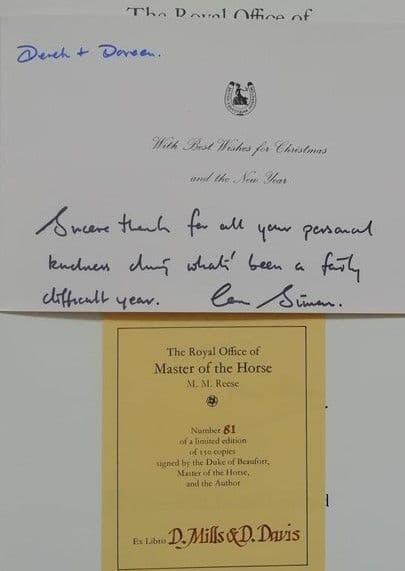 The Royal Office of
Derek + Doreen.
With Best Wishes for Christmas
and the New Year
Sincere thanks for all your personal
kindness during what's been a fairly
difficult year. Simon.
The Royal Office of
Master of the Horse
M. M. Reese
Number 81
of a limited edition
of 150 copies
signed by the Duke of Beaufort,
Master of the Horse,
and the Author
Ex Libris D. Mills & D. Davis